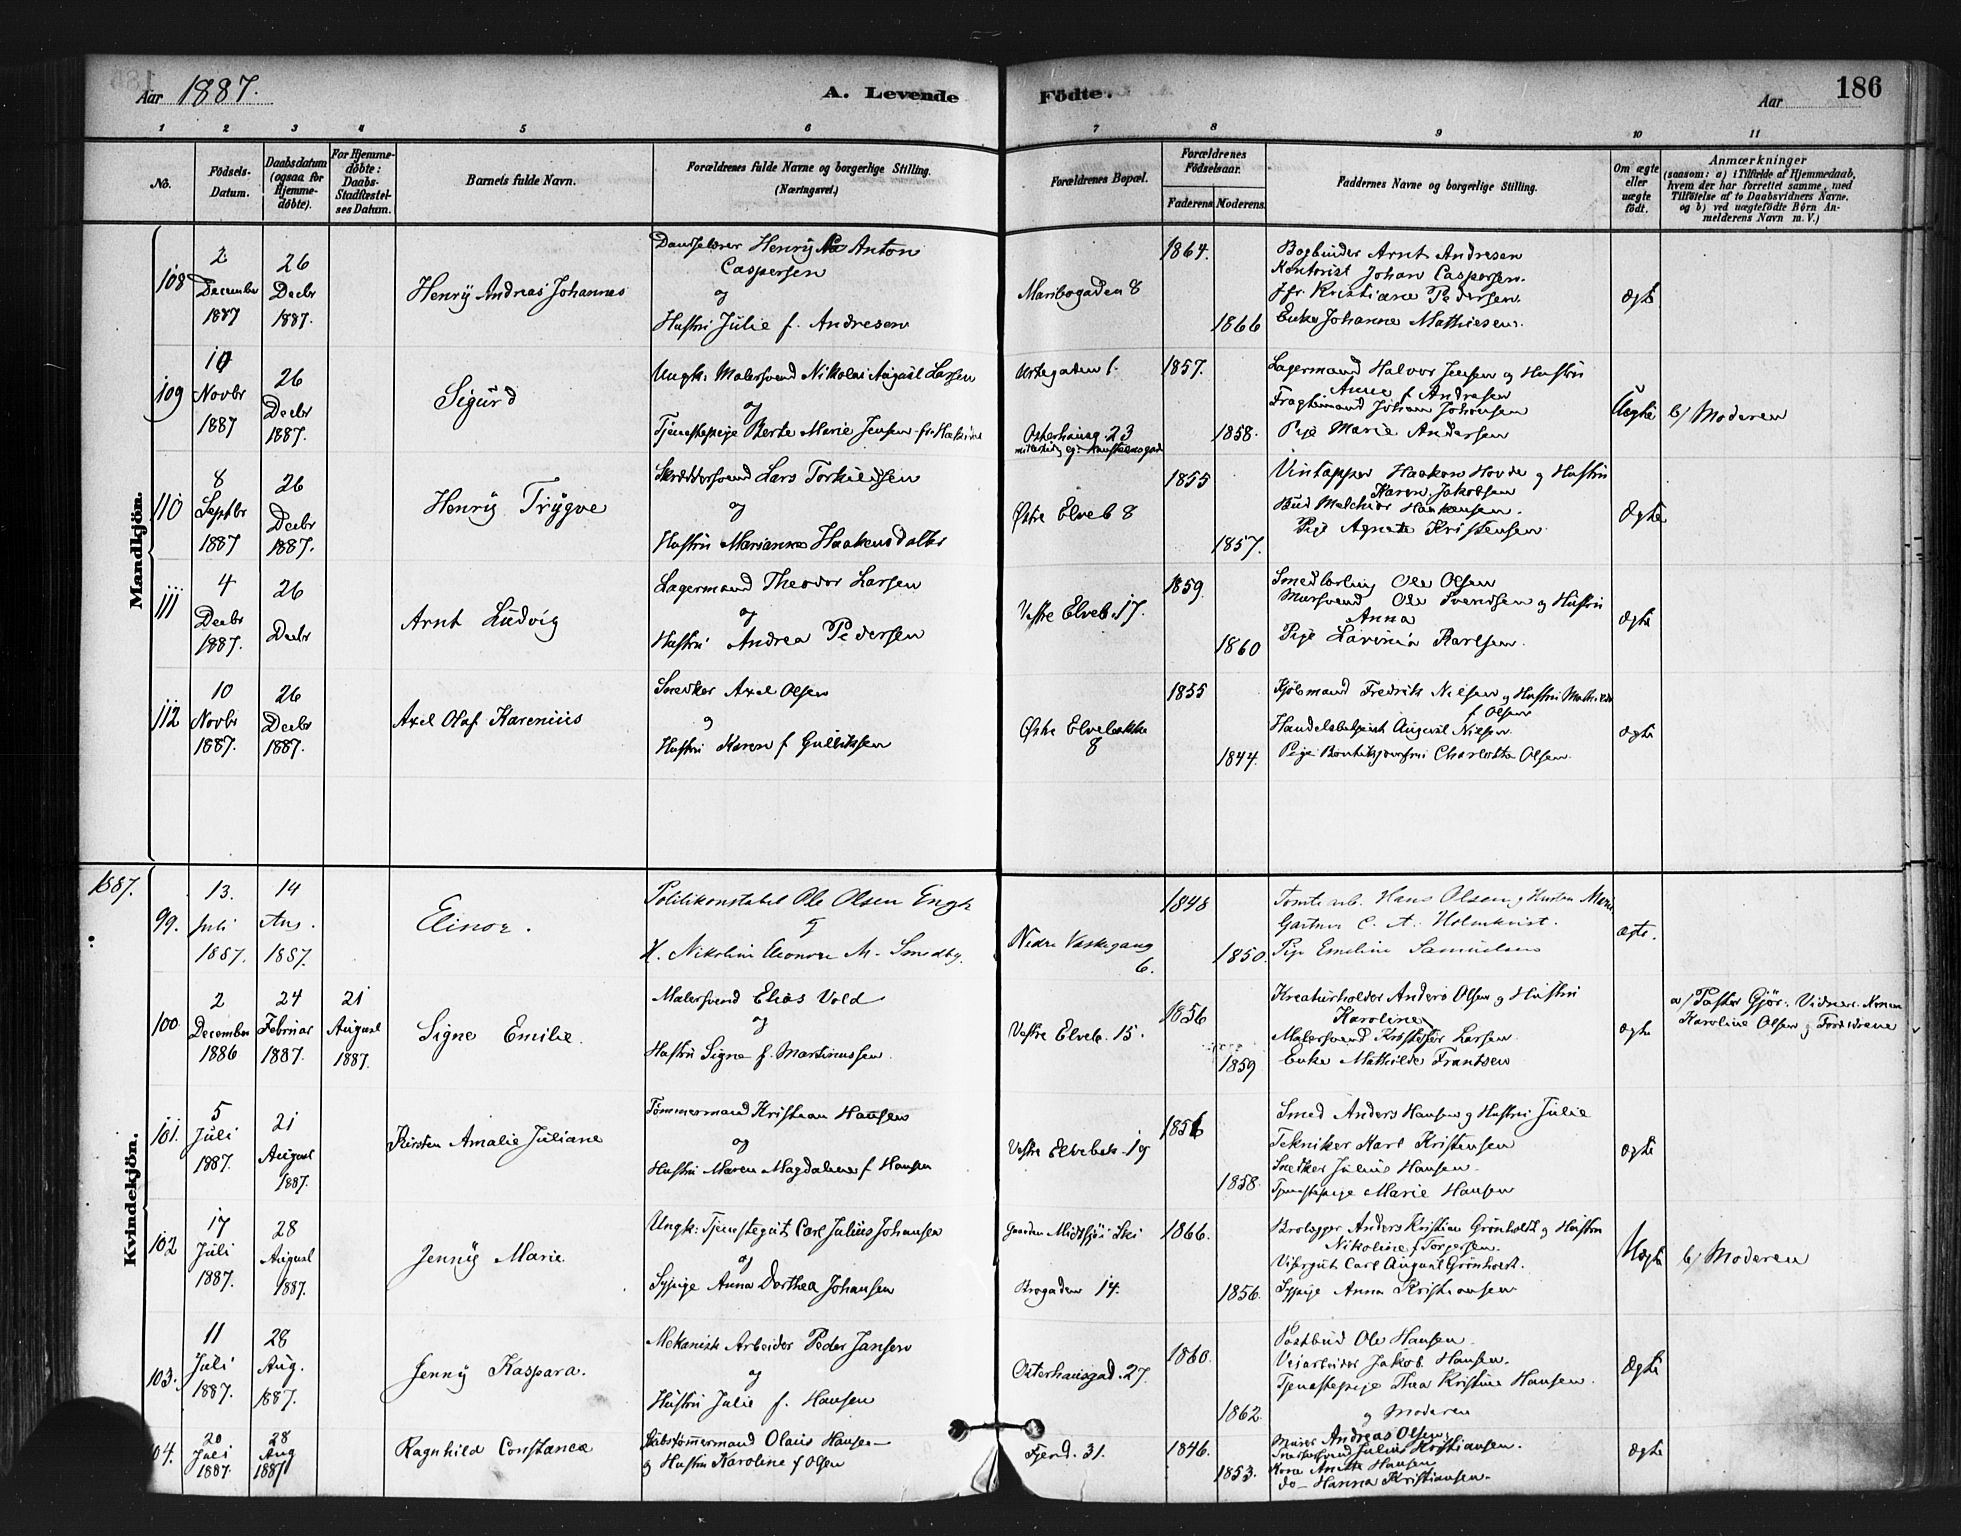 Aar 1887.
A. Levende Fødte.
Aar
186
1 2 3 4 5 6 7 8 9 10 11
No.
Fødsels-Datum.
Daabsdatum (ogsaa for Hjemmedøbte).
For Hjemmedøbte: Daabs-Stadfæstelses Datum.
Barnets fulde Navn.
Forældrenes fulde Navne og borgerlige Stilling. (Næringsvei.)
Forældrenes Bopæl.
Forældrenes Fødselsaar.
Faderens Moderens
Faddernes Navne og borgerlige Stilling.
Om ægte eller uægte født.
Anmærkninger
(saasom: a) i Tilfælde af Hjemmedaab,
hvem der har forrettet samme, med
Tilføielse af to Daabsvidners Navne.
og b) ved uægtefødte Børn An-
melderens Navn m. V.)
Mandkjön.
108
2 December 1887
26 Decbr 1887.
Henry Andreas Johannes
Henry Anton Caspersen
og
Hustru Julie f. Andresen
Maribogaden 8
1864.
1866
Bogbinder Arnt Andresen
Kontorist Johan Caspersen.
Jfr. Kristiane Pedersen
Enke Johanne Mathiesen.
ægte
109
Novbr 1887
26 Decbr 1887.
Sigurd
Ungk: Malersvend Nikolai August Larsen
og
Tjenestepige Berte Marie Jensen
Urtegaden 1.
Osterhausg 23
1857.
1858.
Lagermand Halvor Jensen og Hustru
Anne f Andresen
Fragtmand Johan Johansen
Pige Marie Andersen
Uægte
b/ Moderen
110
8 Septbr 1887
26 Decbr 1887.
Henry Trygve
Skræddersvend Lars Torkildsen
og
Hustru Marianne Haakensdatter
Østre Elveb 8
1855
1857.
Vintapper Haakon Hovde og Hustru
Karen Jakobsen
Bud Melchior Haakensen.
Pige Agnete Kristensen
Ægte
111
4 Decbr 1887.
26 Decbr
Arnt Ludvig
Lagermand Theodor Larsen
og
Hustru Andrea Pedersen
Vestre Elveb. 17.
1859.
1860
Smedlærling Ole Olsen
Mursvend Ole Svendsen og Hustru
Anna
Pige Lavinia Karlsen.
ægte
112
10 Novbr 1887.
26 Decbr 1887.
Axel Olaf Karenius
Snedker Axel Olsen
og
Hustru Karen f Gulliksen
Østre Elvebakke 8
1855
1844.
Kjøbmand Fredrik Nilsen og Hustru Mathilde
f Olsen
Handelsbetjent August Nilsen
Pige Charlotte Olsen.
ægte
Kvindekjön.
1887.
99.
13. Juli 1887.
14 Aug. 1887.
Elinor.
Politikonstabel Ole Olsen Engh
og
H. Nikoline Eleonore M. Smedby.
Nedre Vaskegang 6.
1848
1850.
Hans Olsen og Hustru Marie
Gartner C. A. Holmkvist.
Pige Emeline Samuelsen
ægte.
100
2 December 1886
24 Februar 1887.
21 August 1887.
Signe Emilie.
Malersvend Elias Vold
og
Hustru Signe f. Martinussen.
Vestre Elveb. 15.
1856
1859
Kreaturholder Anders Olsen og Hustru
Karoline
Malersvend Kristofer Larsen.
Enke Mathilde Frantsen
ægte
a/ Pastor Gjør. Vidner: Konen
Karoline Olsen og Forældrene
101.
5 Juli 1887.
21 August 1887.
Kirsten Amalie Juliane
Tømmermand Kristian Hansen
og
Hustru Maren Magdalene f Hansen
Vestre Elvebak. 19
1858.
Smed Anders Hansen og Hustru Julie
Tekniker Karl Kristensen
Snedker Julius Hansen
Tjenestepige Marie Hansen
ægte
102
17 Juli 1887.
28 August 1887.
Jenny Marie
Ungk: Tjenestegut Carl Julius Johansen
og
Sypige Anna Dorthea Johansen
Gaarden Midtsjø i Ski
Brogaden 14.
1866.
1856.
Brolægger Anders Kristian Grønholdt og Hustru
Nikoline f Torgersen.
Visergut Carl August Grønholdt.
Sypige Anna Kristiansen
Uægte
b/ Moderen
103.
11 Juli 1887.
28 Aug. 1887.
Jenny Kaspara.
Mekanisk Arbeider Peder Jansen
og
Hustru Julie f. Hansen
Osterhausgad. 27.
1860.
1862
Postbud Ole Hansen
Veiarbeider Jakob Hansen.
Tjenestepige Thea Kristine Hansen.
og Moderen
Ægte
04.
20 Juli 1887.
28 Aug 1887
Ragnhild Constance
Skibstømmermand Olaus Hansen
og Hustru Karoline f Olsen
Fjerd. 31.
1846.
1853.
Murer Andreas Olsen,
Julius Kristiansen.
Kone Anette Hansen
do- Hanna Kristiansen.
ægte